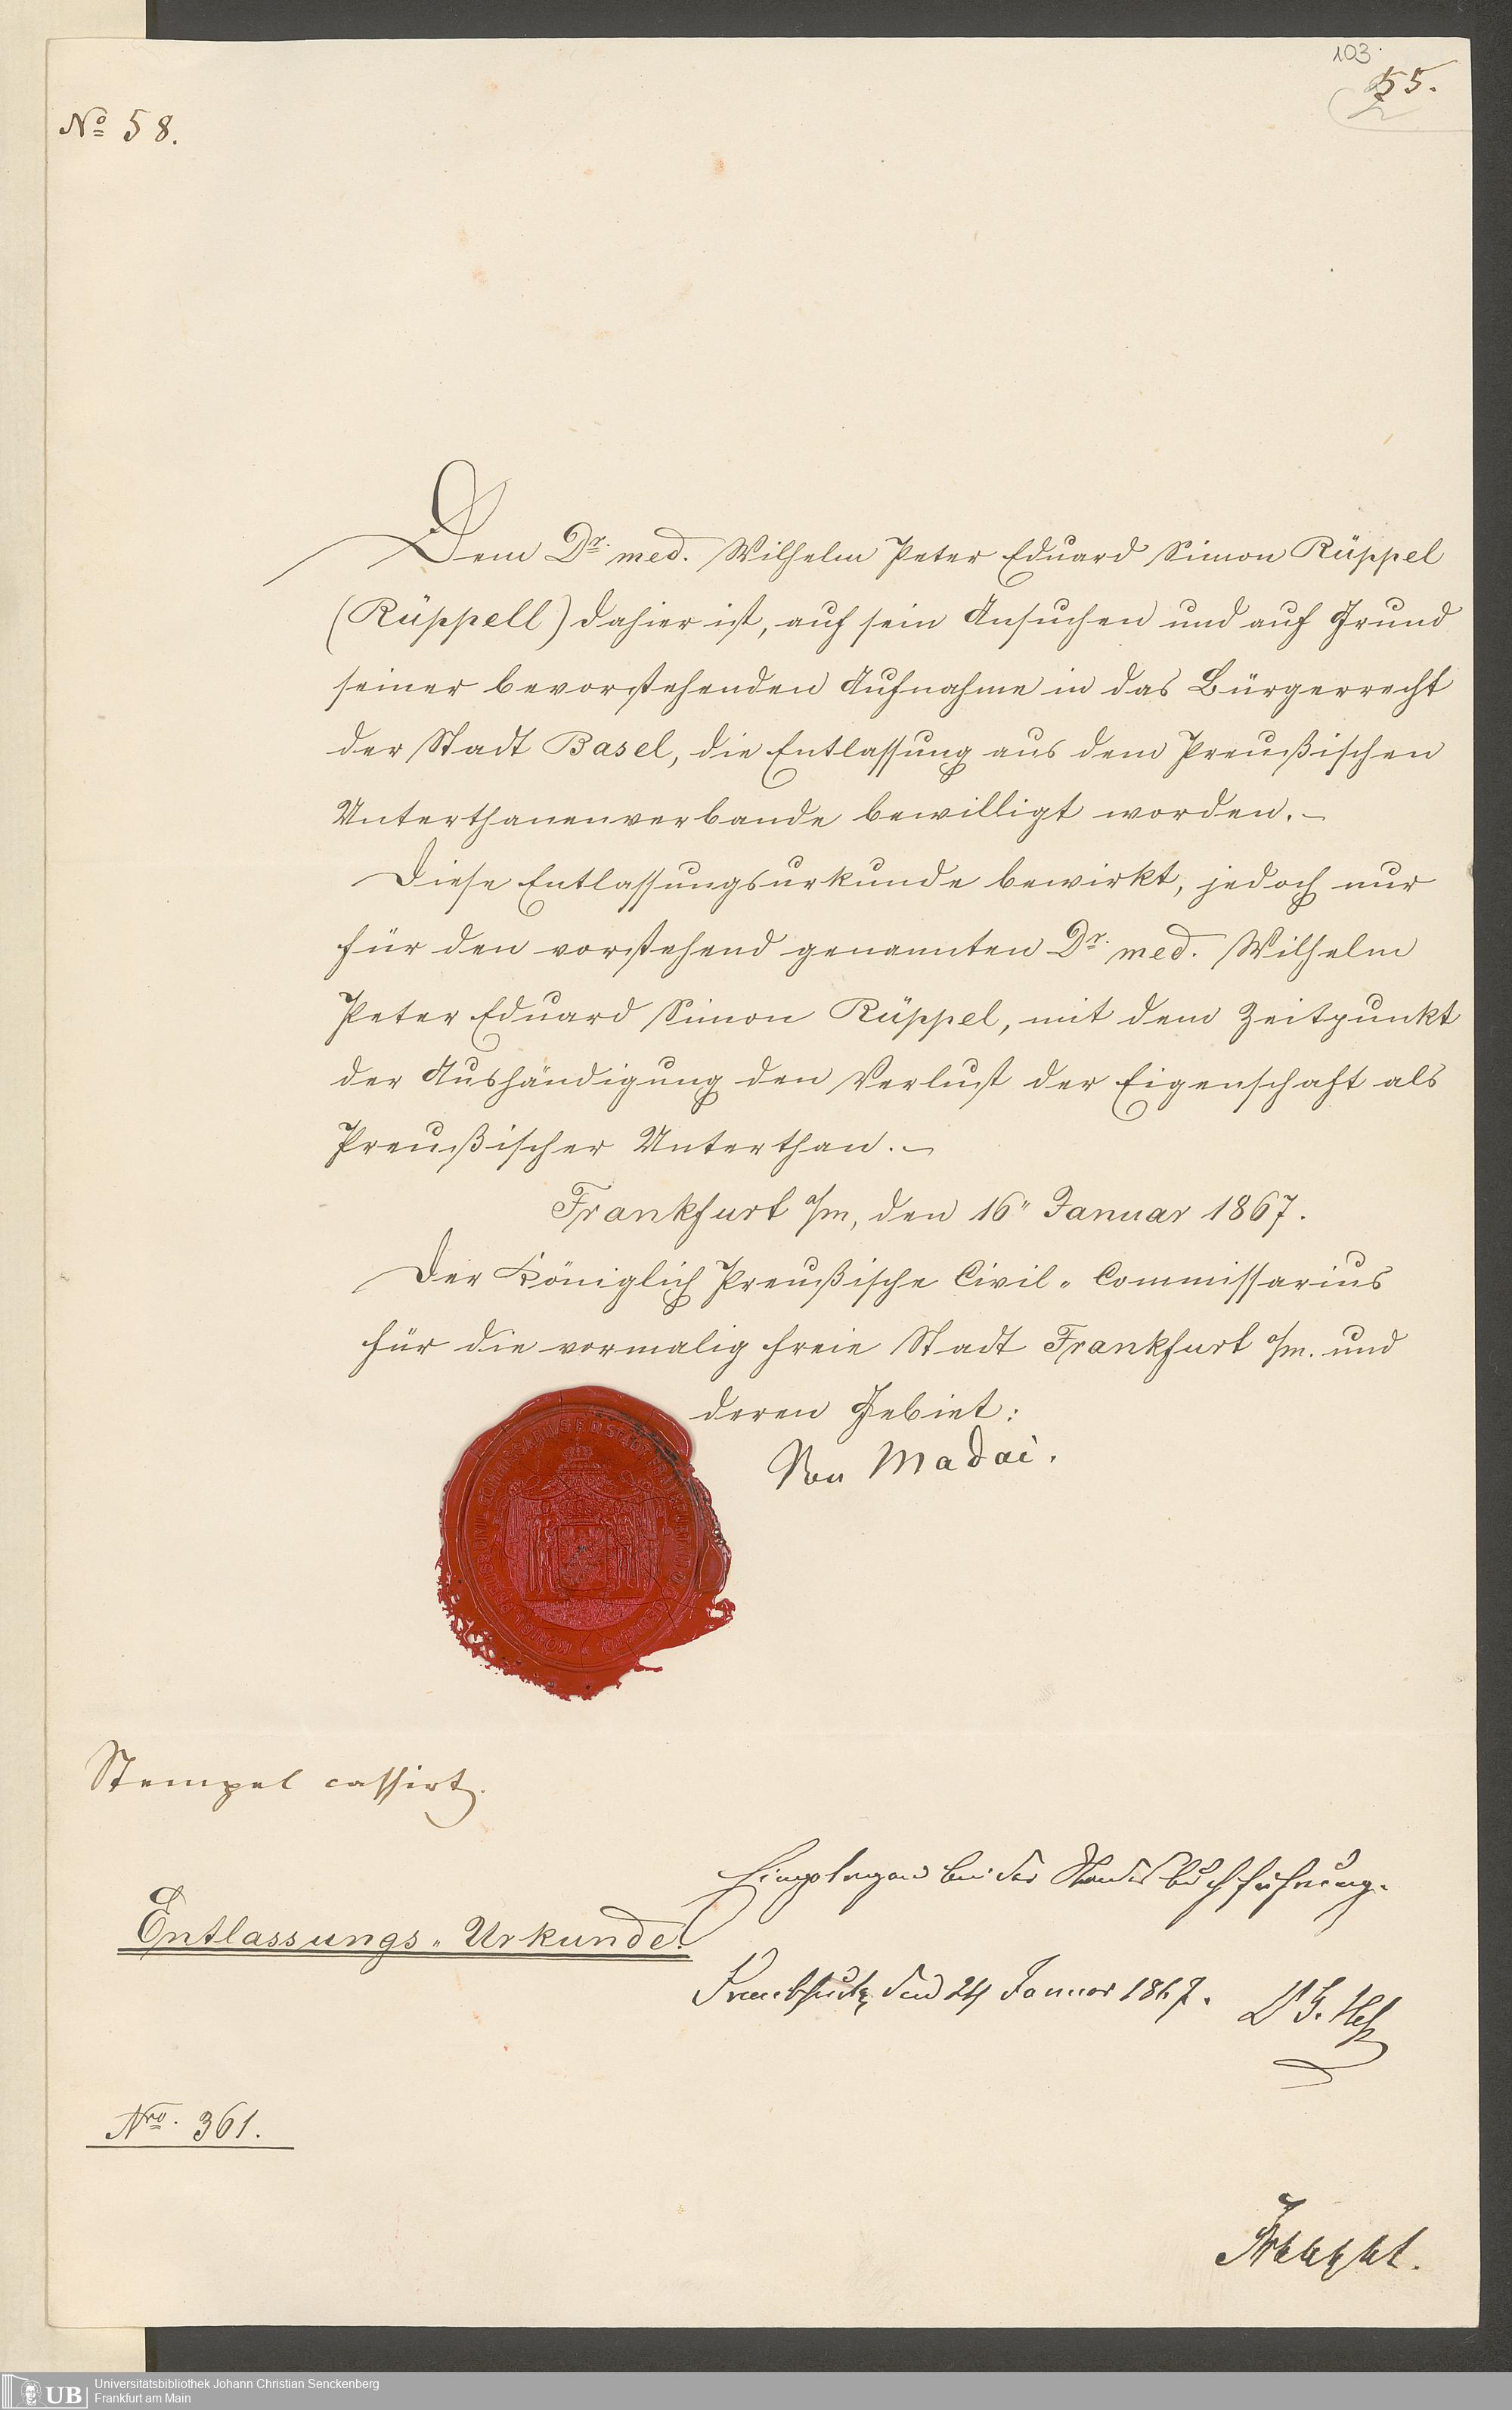 103.
55.
No 58.
Dem Dr. med. Wilhelm Peter Eduard Simon Rüppel
(Rüppell) dahier ist, auf sein Ansuchen und auf Grund
seiner bevorstehenden Aufnahme in das Bürgerrecht
der Stadt Basel, die Entlassung aus dem Preußischen
Unterthanenverbande bewilligt worden.–
Diese Entlassungsurkunde bewirkt, jedoch nur
für den vorstehend genannten Dr. med. Wilhelm
Peter Eduard Simon Rüppel, mit dem Zeitpunkt
der Aushändigung den Verlust der Eigenschaft als
Preußischer Unterthan.–
Frankfurt a/m, den 16" Januar 1867.
Der Königlich Preußische Civil-Commissarius
für die vormalig freie Stadt Frankfurt a/m. und
deren Gebiet:
Von Madai.
Stempel cassirt.
Eingetragen bei der Standesbuchführung.
Entlassungs-Urkunde.
Frankfurt, den 24 Januar 1867. Dr G. Heß
Nro. 361.
Universitätsbibliothek Johann Christian Senckenberg
UB
Frankfurt am Main